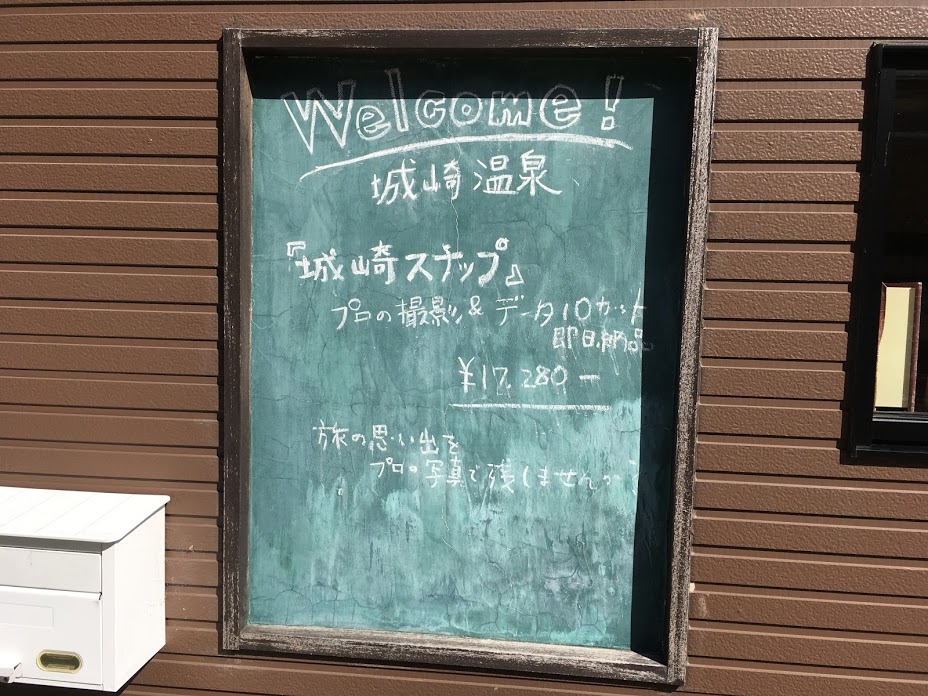 Welcome!
城崎温泉
『城崎スナップ』
プロの撮影&データ10カット
即日納品
¥17,280ー
旅の思い出を
プロの写真で残しませんか?